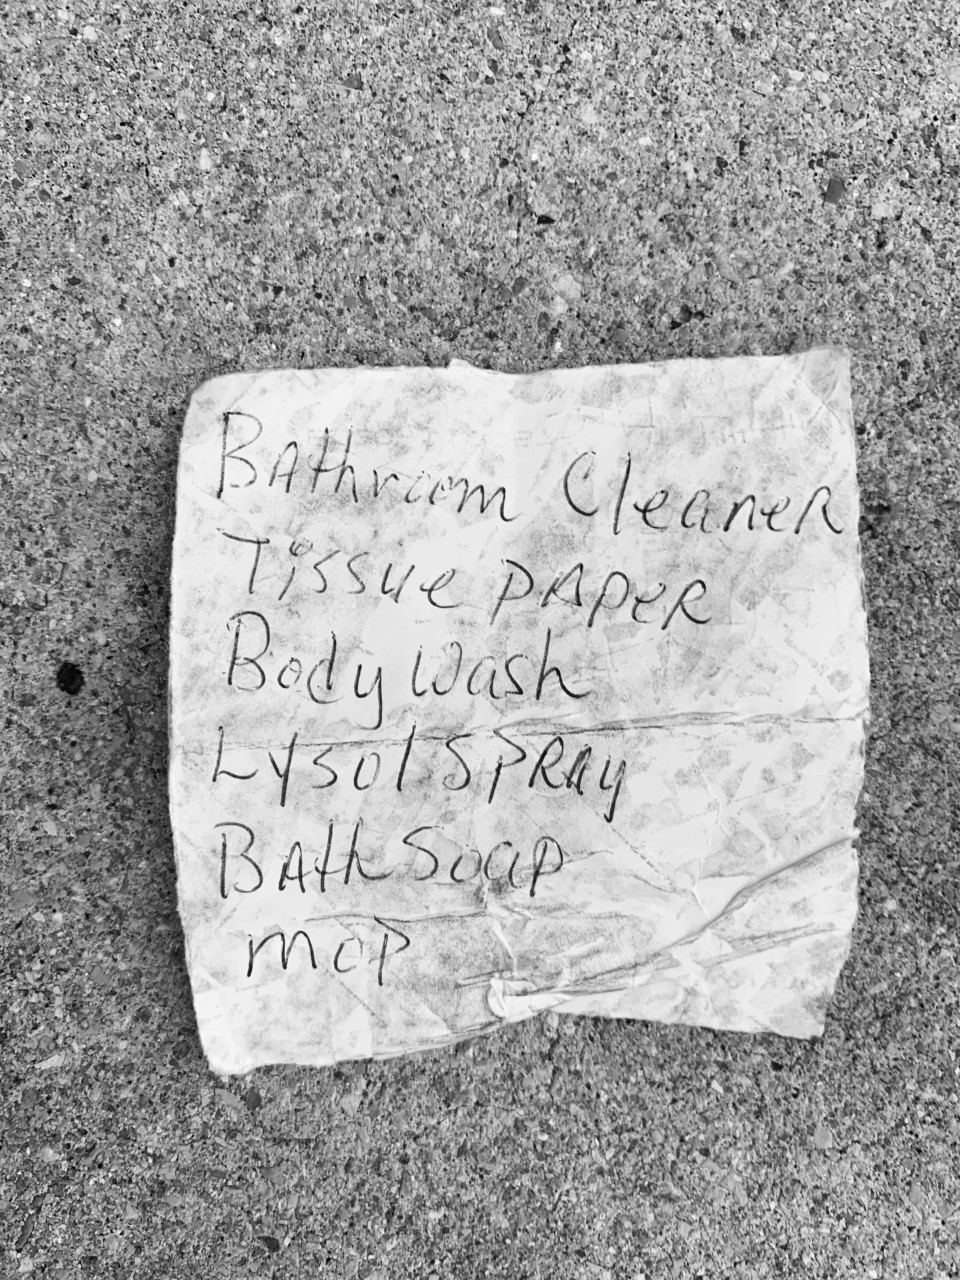 Bathroom Cleaner
Tissue paper
Body Wash
Lysol Spray
Bath Soap
mop